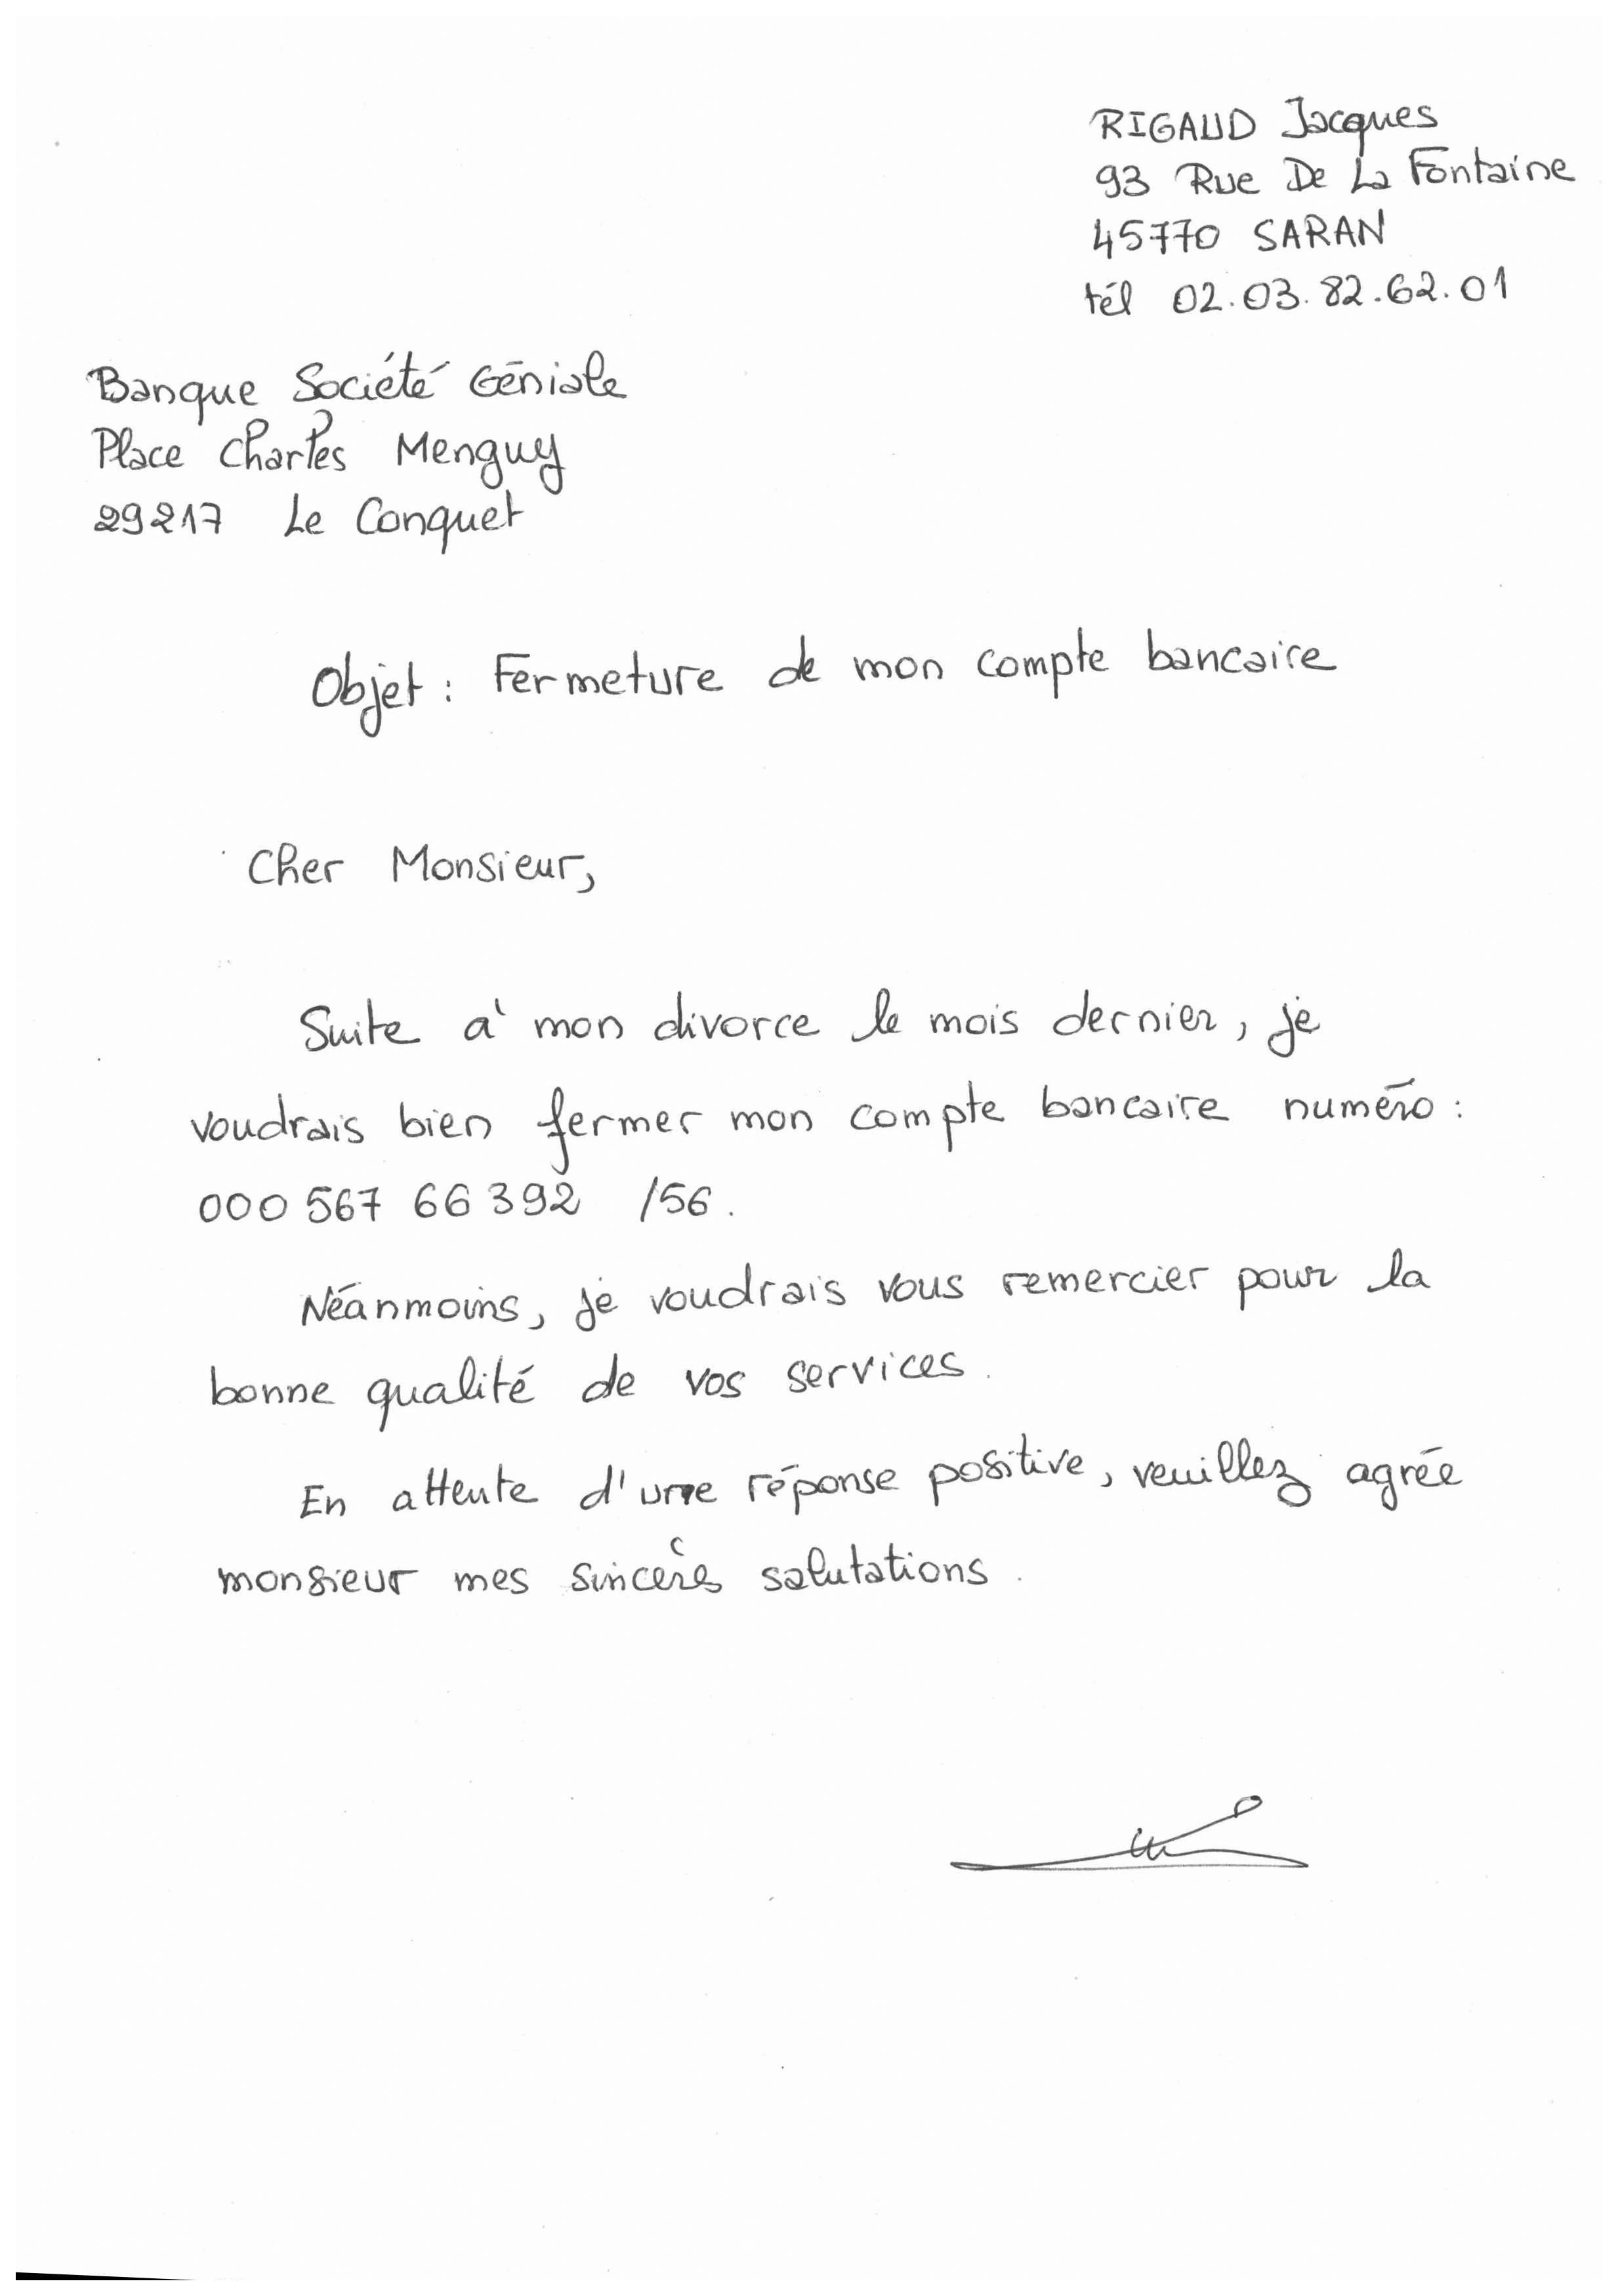 RIGAUD Jacques
93 Rue De La Fontaine
45770 SARAN
tél 02.03.82.62.01
Banque Société Géniale
Place Charles Menguy
29217 Le Conquet
Objet : Fermeture de mon compte bancaire
Cher Monsieur,
Suite à mon divorce le mois dernier, je
voudrais bien fermer mon compte bancaire numéro :
000 567 66 392 /56.
Néanmoins, je voudrais vous remercier pour la
bonne qualité de vos services.
En attente d'une réponse positive, veuillez agrée
monsieur mes sincères salutations.